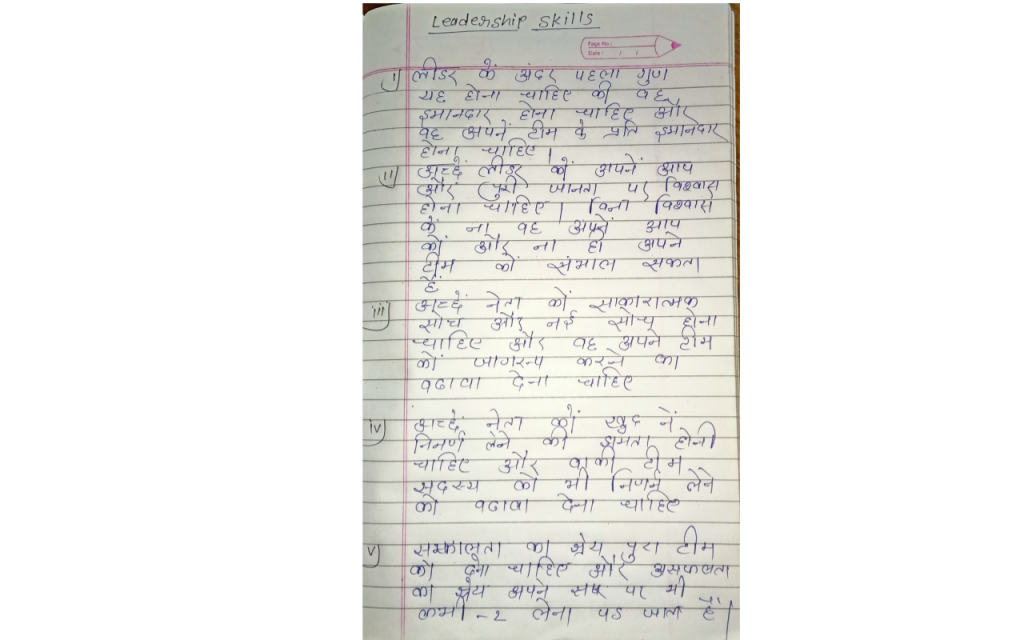 Leadership Skills
Page No :
Date : / /
i) लीडर कें अंदर पहला गुण
यह होना चाहिए की वह
इमानदार होना चाहिए और
वह अपनें टीम के प्रति इमानदार
होना चाहिए।
ii) अच्छें लीडर कों अपनें आप
और पुरी जानता पर विश्वास
होना चाहिए। विना विश्वास
कें ना वह अपनें आप
कों और ना ही अपने
टीम कों संभाल सकता
हैं
iii) अच्छें नेता कों साकारात्मक
सोच और नई सोच होना
चाहिए और वह अपने टीम
कों करने का
वढावा देना चाहिए
iv) अच्छें नेता कों खुद नें
निर्मण लेने की क्षमता होनी
चाहिए और वाकी टीम
सदस्य कों भी निर्णन लेने
कों वढावा देना चाहिए
v) सफ्फालता का श्रेय पुरा टीम
कों देना चाहिए और असफलता
का श्रेय अपने पर भी
कभी -२ लेना पड जाता हैं।